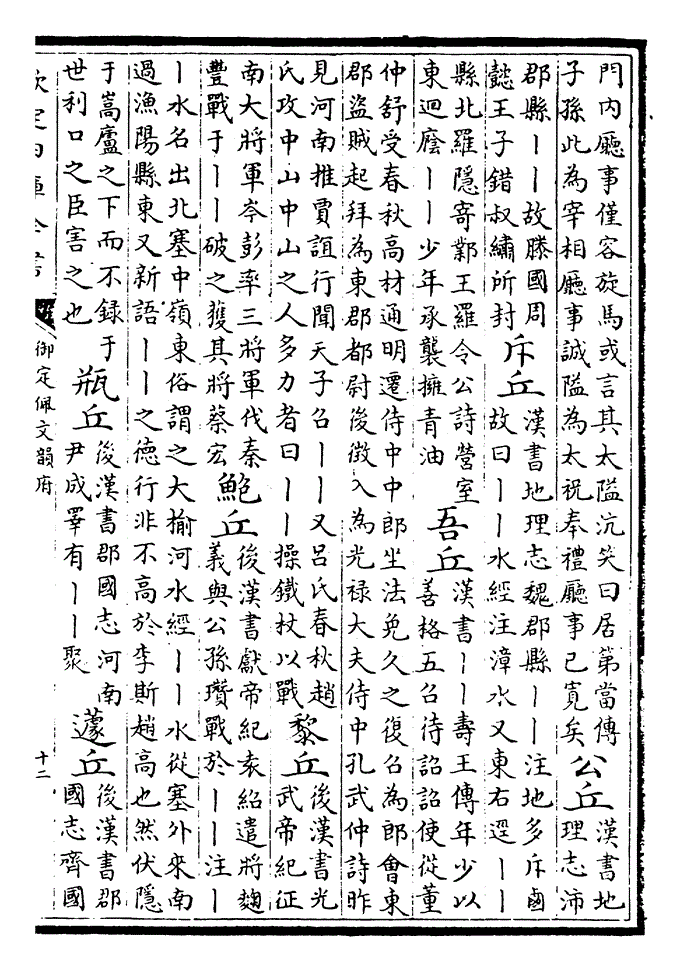 門内廳事僅容旋馬或言其太隘沆笑曰居第當傳
子孫此為宰相廳事誠隘為太祝奉禮廳事已寛矣
公丘
漢書地
理志沛
郡縣丨丨故滕國周
懿王子錯叔繡所封
斥丘
漢書地理志魏郡縣丨丨注地多斥鹵
故曰丨丨水經注漳水又東右逕丨丨
縣北羅隱寄鄴王羅令公詩營室
東迴麾丨丨少年承襲擁青油
吾丘
漢書丨丨壽王傳年少以
善格五召待詔詔使從董
仲舒受春秋高材通明遷侍中中郎坐法免久之復召為郎會東
郡盜賊起拜為東郡都尉後徵入為光禄大夫侍中孔武仲詩昨
見河南推賈誼行聞天子召丨丨又吕氏春秋趙
氏攻中山中山之人多力者曰丨丨操鐵杖以戰
黎丘
後漢書光
武帝紀征
南大將軍岑彭率三將軍代秦
豐戰于丨丨破之獲其將蔡宏
鮑丘
後漢書獻帝紀袁紹遣將麴
義與公孫瓚戰於丨丨注丨
丨水名出北塞中嶺東俗謂之大榆河水經丨丨水從塞外來南
過漁陽縣東又新語丨丨之德行非不高於李斯趙高也然伏隱
于嵩廬之下而不録于
世利口之臣害之也
瓶丘
後漢書郡國志河南
尹成睪有丨丨聚
蘧丘
後漢書郡
國志齊國
欽定四庫全書
御定佩文韻府
十二